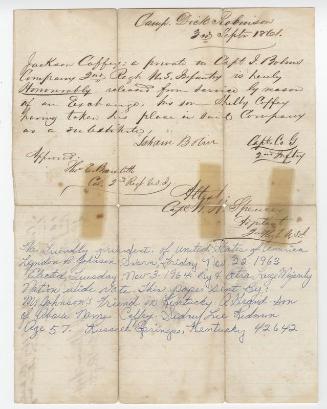 Camp Dick Robinson
3rd Septr 1861.
Jackson Coffey a private in Capt I. Bobers
Company 2nd Regt U.S. Infantry is hereby
Honourably released from service by reason
of an Exchange, his son Shelly Coffey
having taken his place in said Company
as a substitute,
Isham Bober
Capt. Co. G
2nd Infty
Approved:
Tho E Bramlette
Col.
Attest:
Capt
Spencer
The Friendly president of United States of America
Lyndon B Johnson Sworn, Friday Nov 22 1963
Elected, Tuesday Nov-3-1964 By a Large Majority
Nation wide vote This paper Sent By:
Mr Johnson's Friend in Kentucky
of Sidney Lee
Age 57. Russell Springs, Kentucky 42642